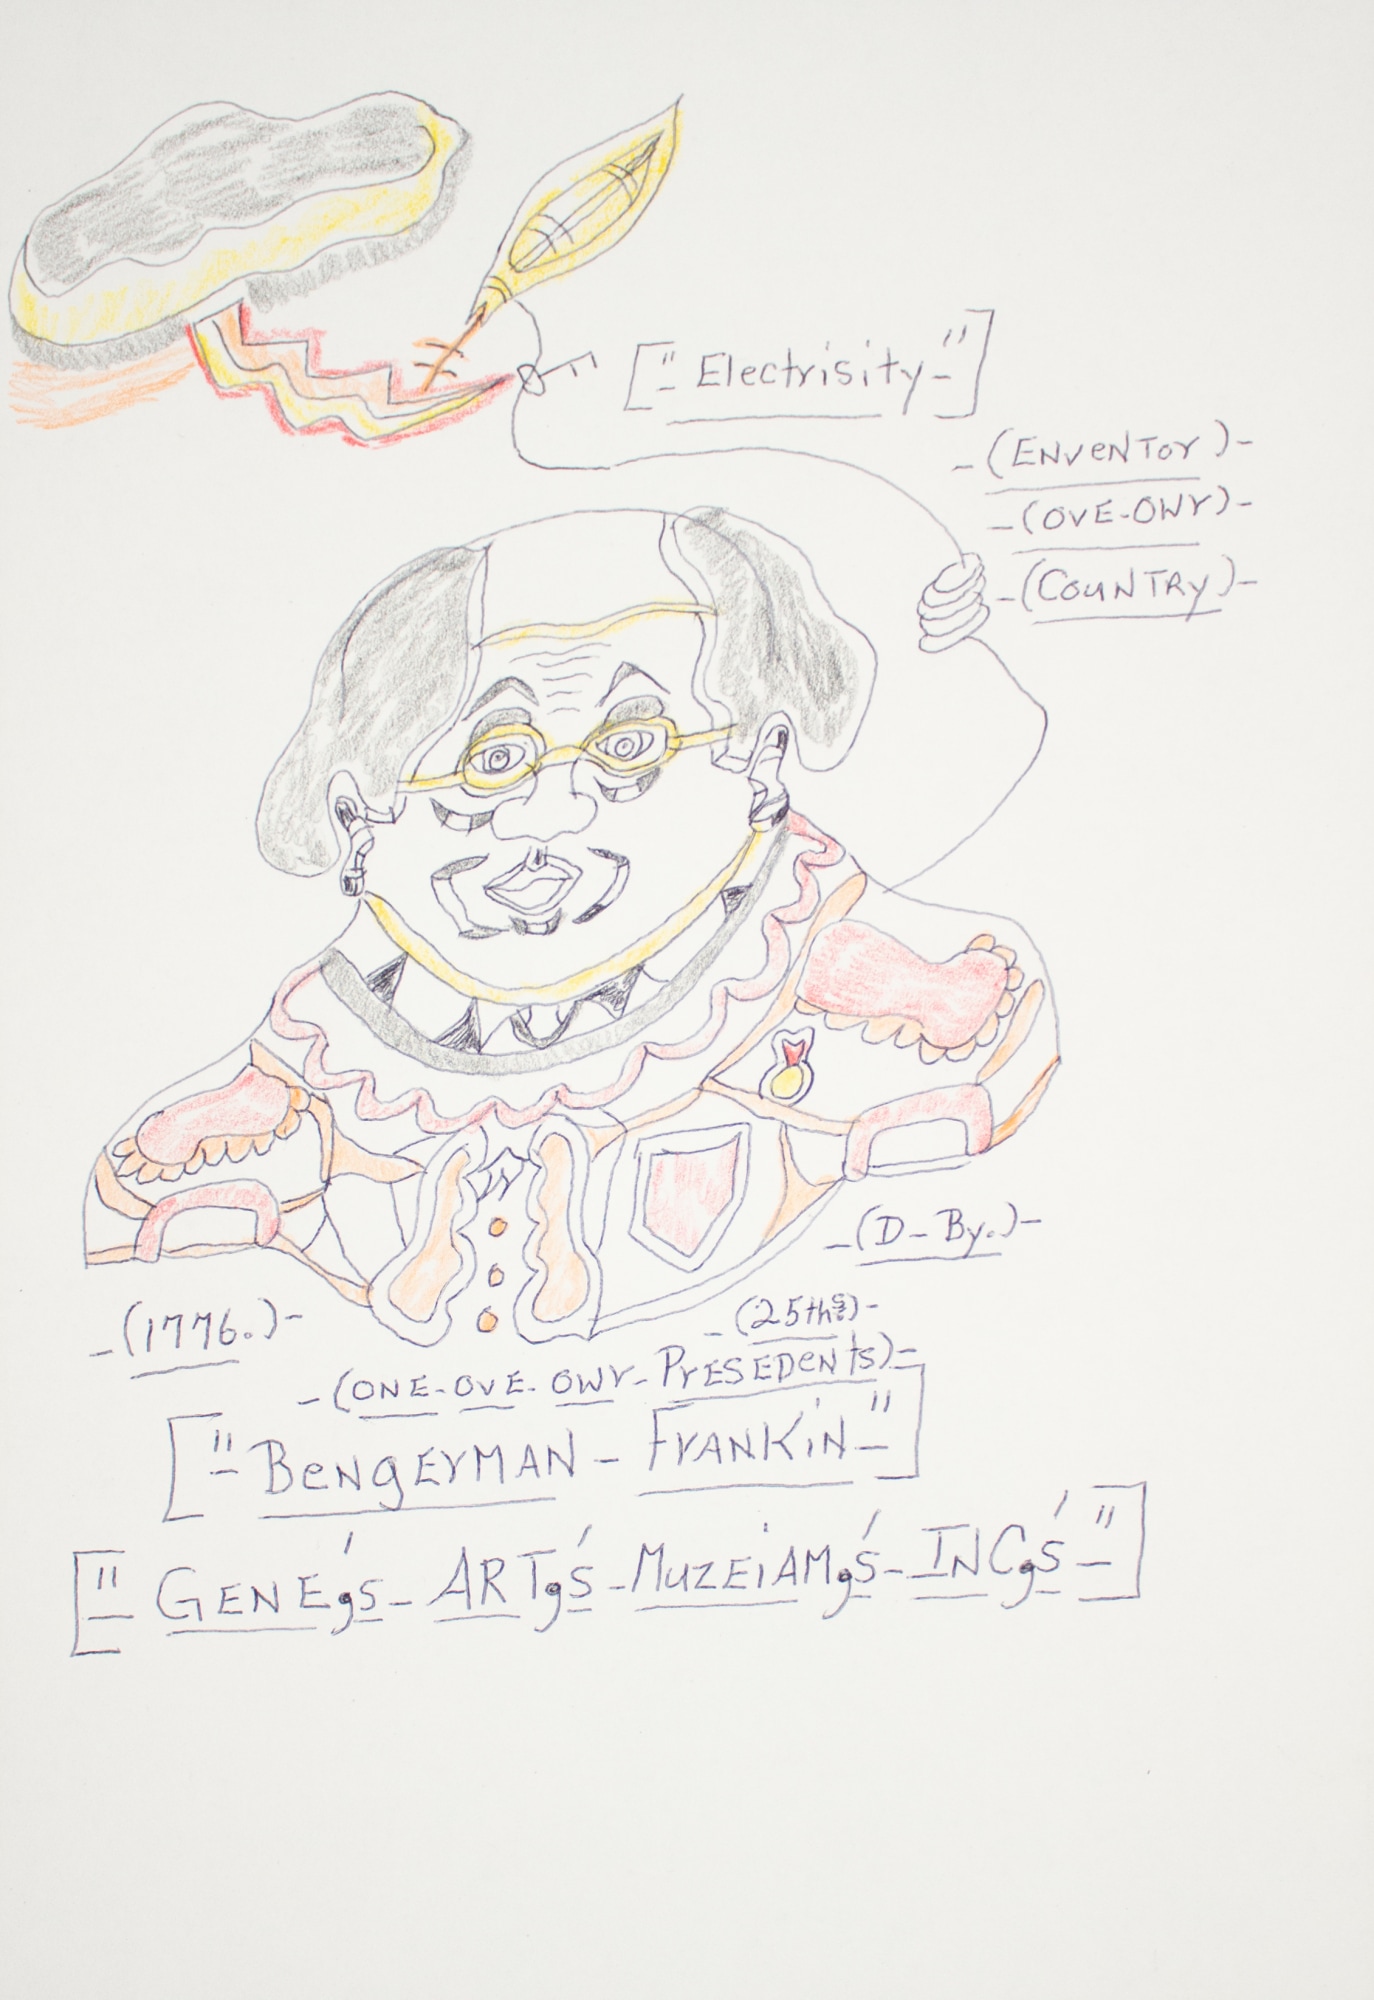 ["Electrisity-"]
-(ENVENTOr)-
-(OVE-OWr)-
-(COUNTRy)-
-(D-By.)-
-(1776.)-
-(25ths)-
-(ONE-OVE-OWr-PrESEDeNts)-
["BeNgErMAN-FrANKiN-"]
["GENEg's-ARTg's-MUZEiAMg's-INCg's-"]